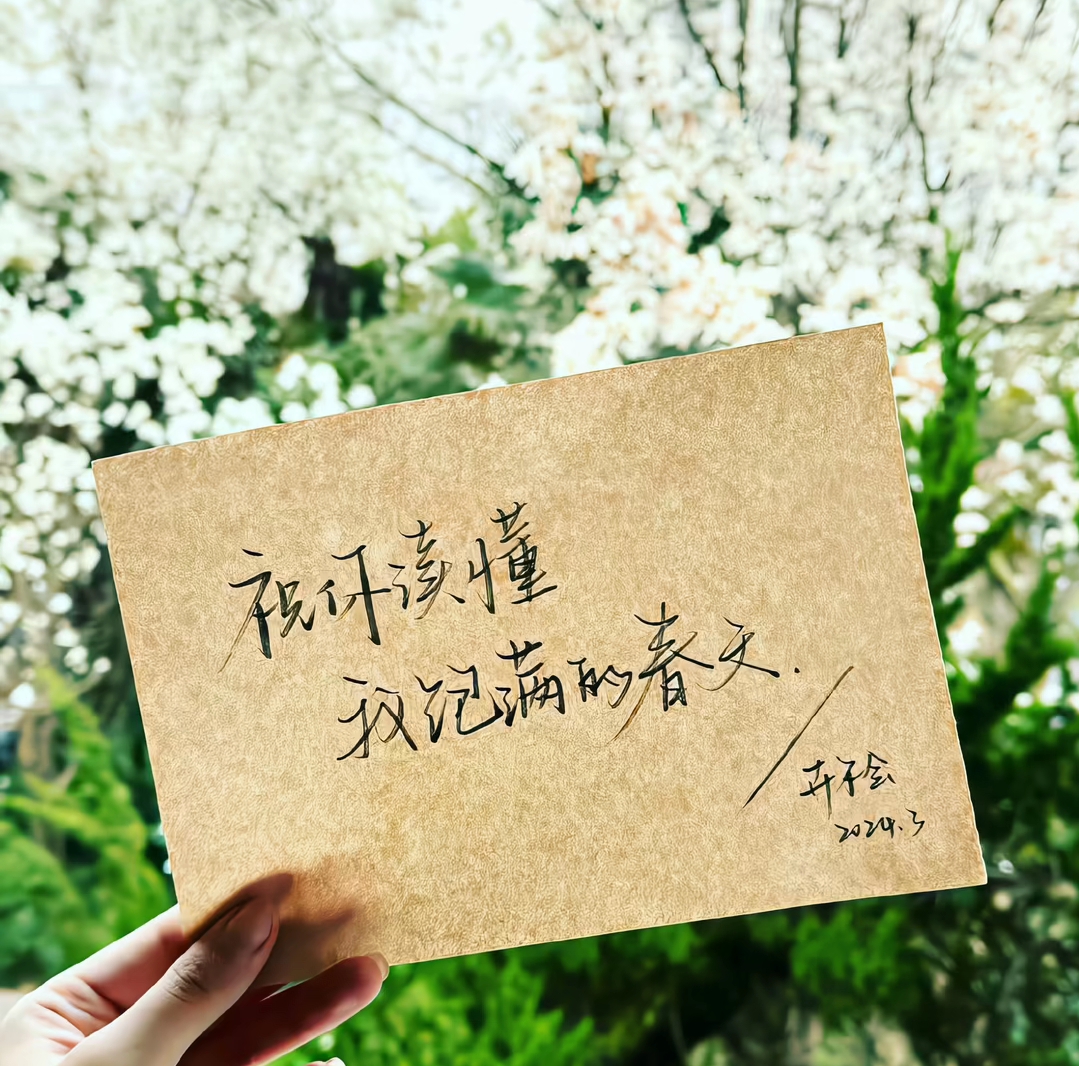 祝你读懂
我记满的春天.
卉不会
2024.3